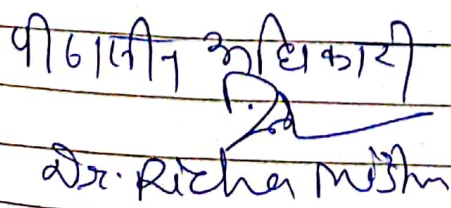 पीठासीन अधिकारी
Dr. Richa Mishra